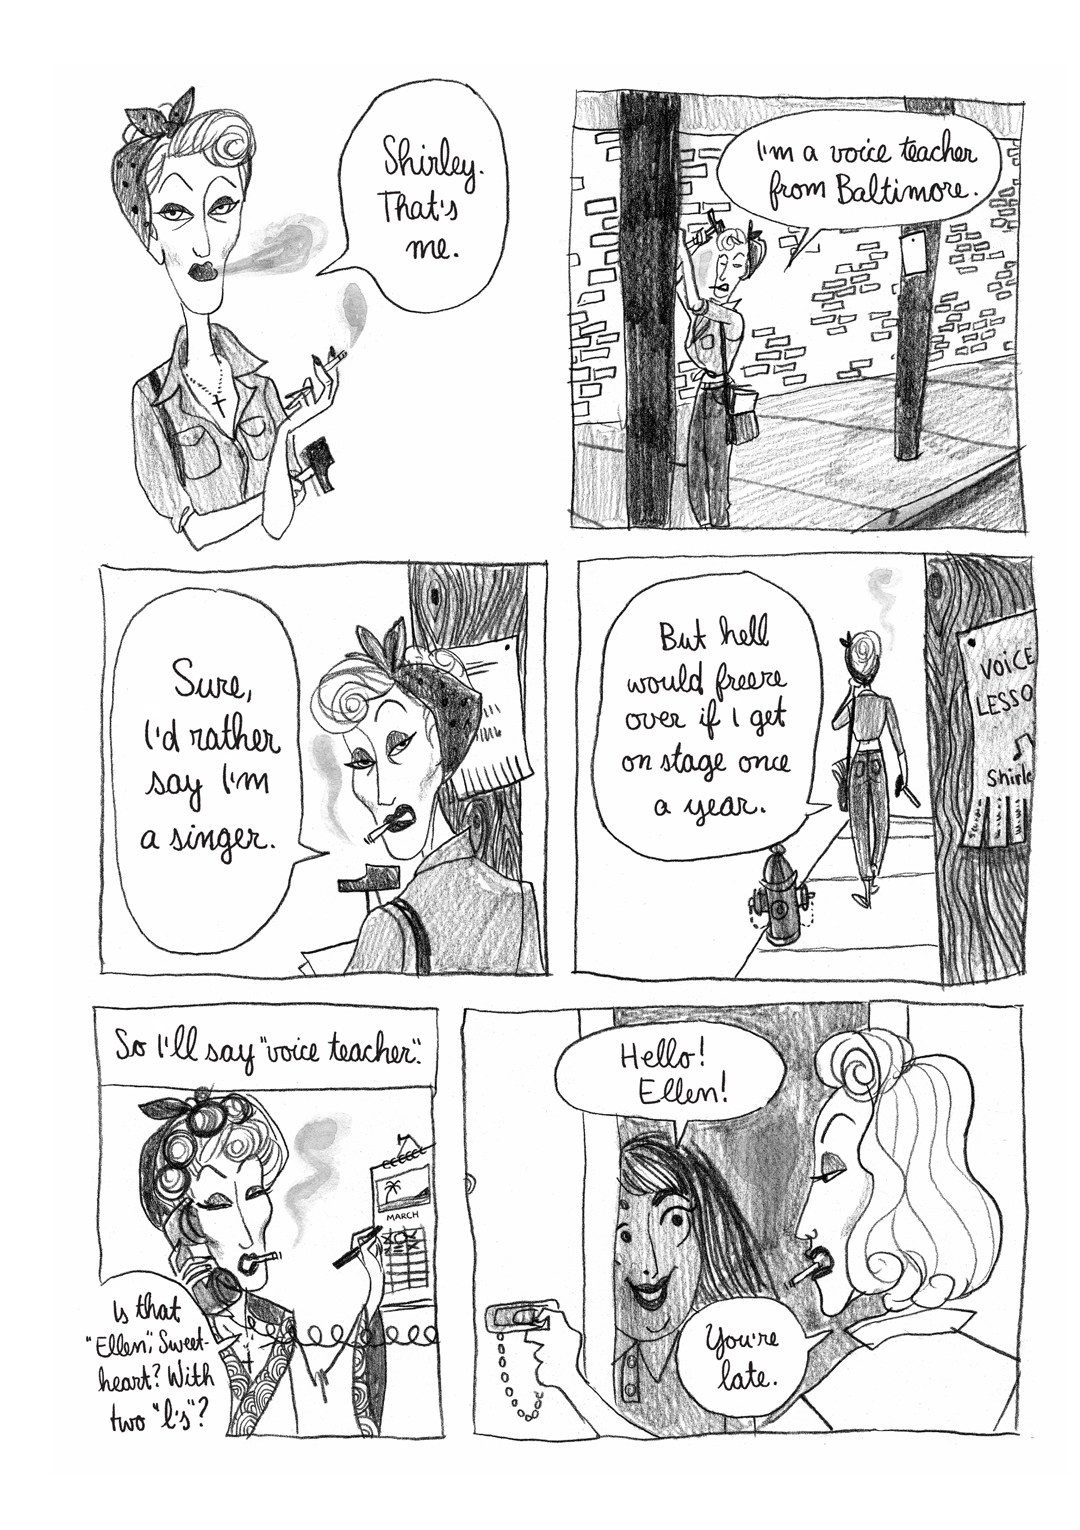 Shirley.
That's
me.
I'm a voice teacher
from Baltimore.
Sure,
I'd rather
say I'm
a singer.
But hell
would freeze
over if I get
on stage once
a year.
VOICE
LESSO
Shirle
So I'll say "voice teacher".
MARCH
Is that
"Ellen", Sweet-
heart? With
two "l's"?
Hello!
Ellen!
You're
late.